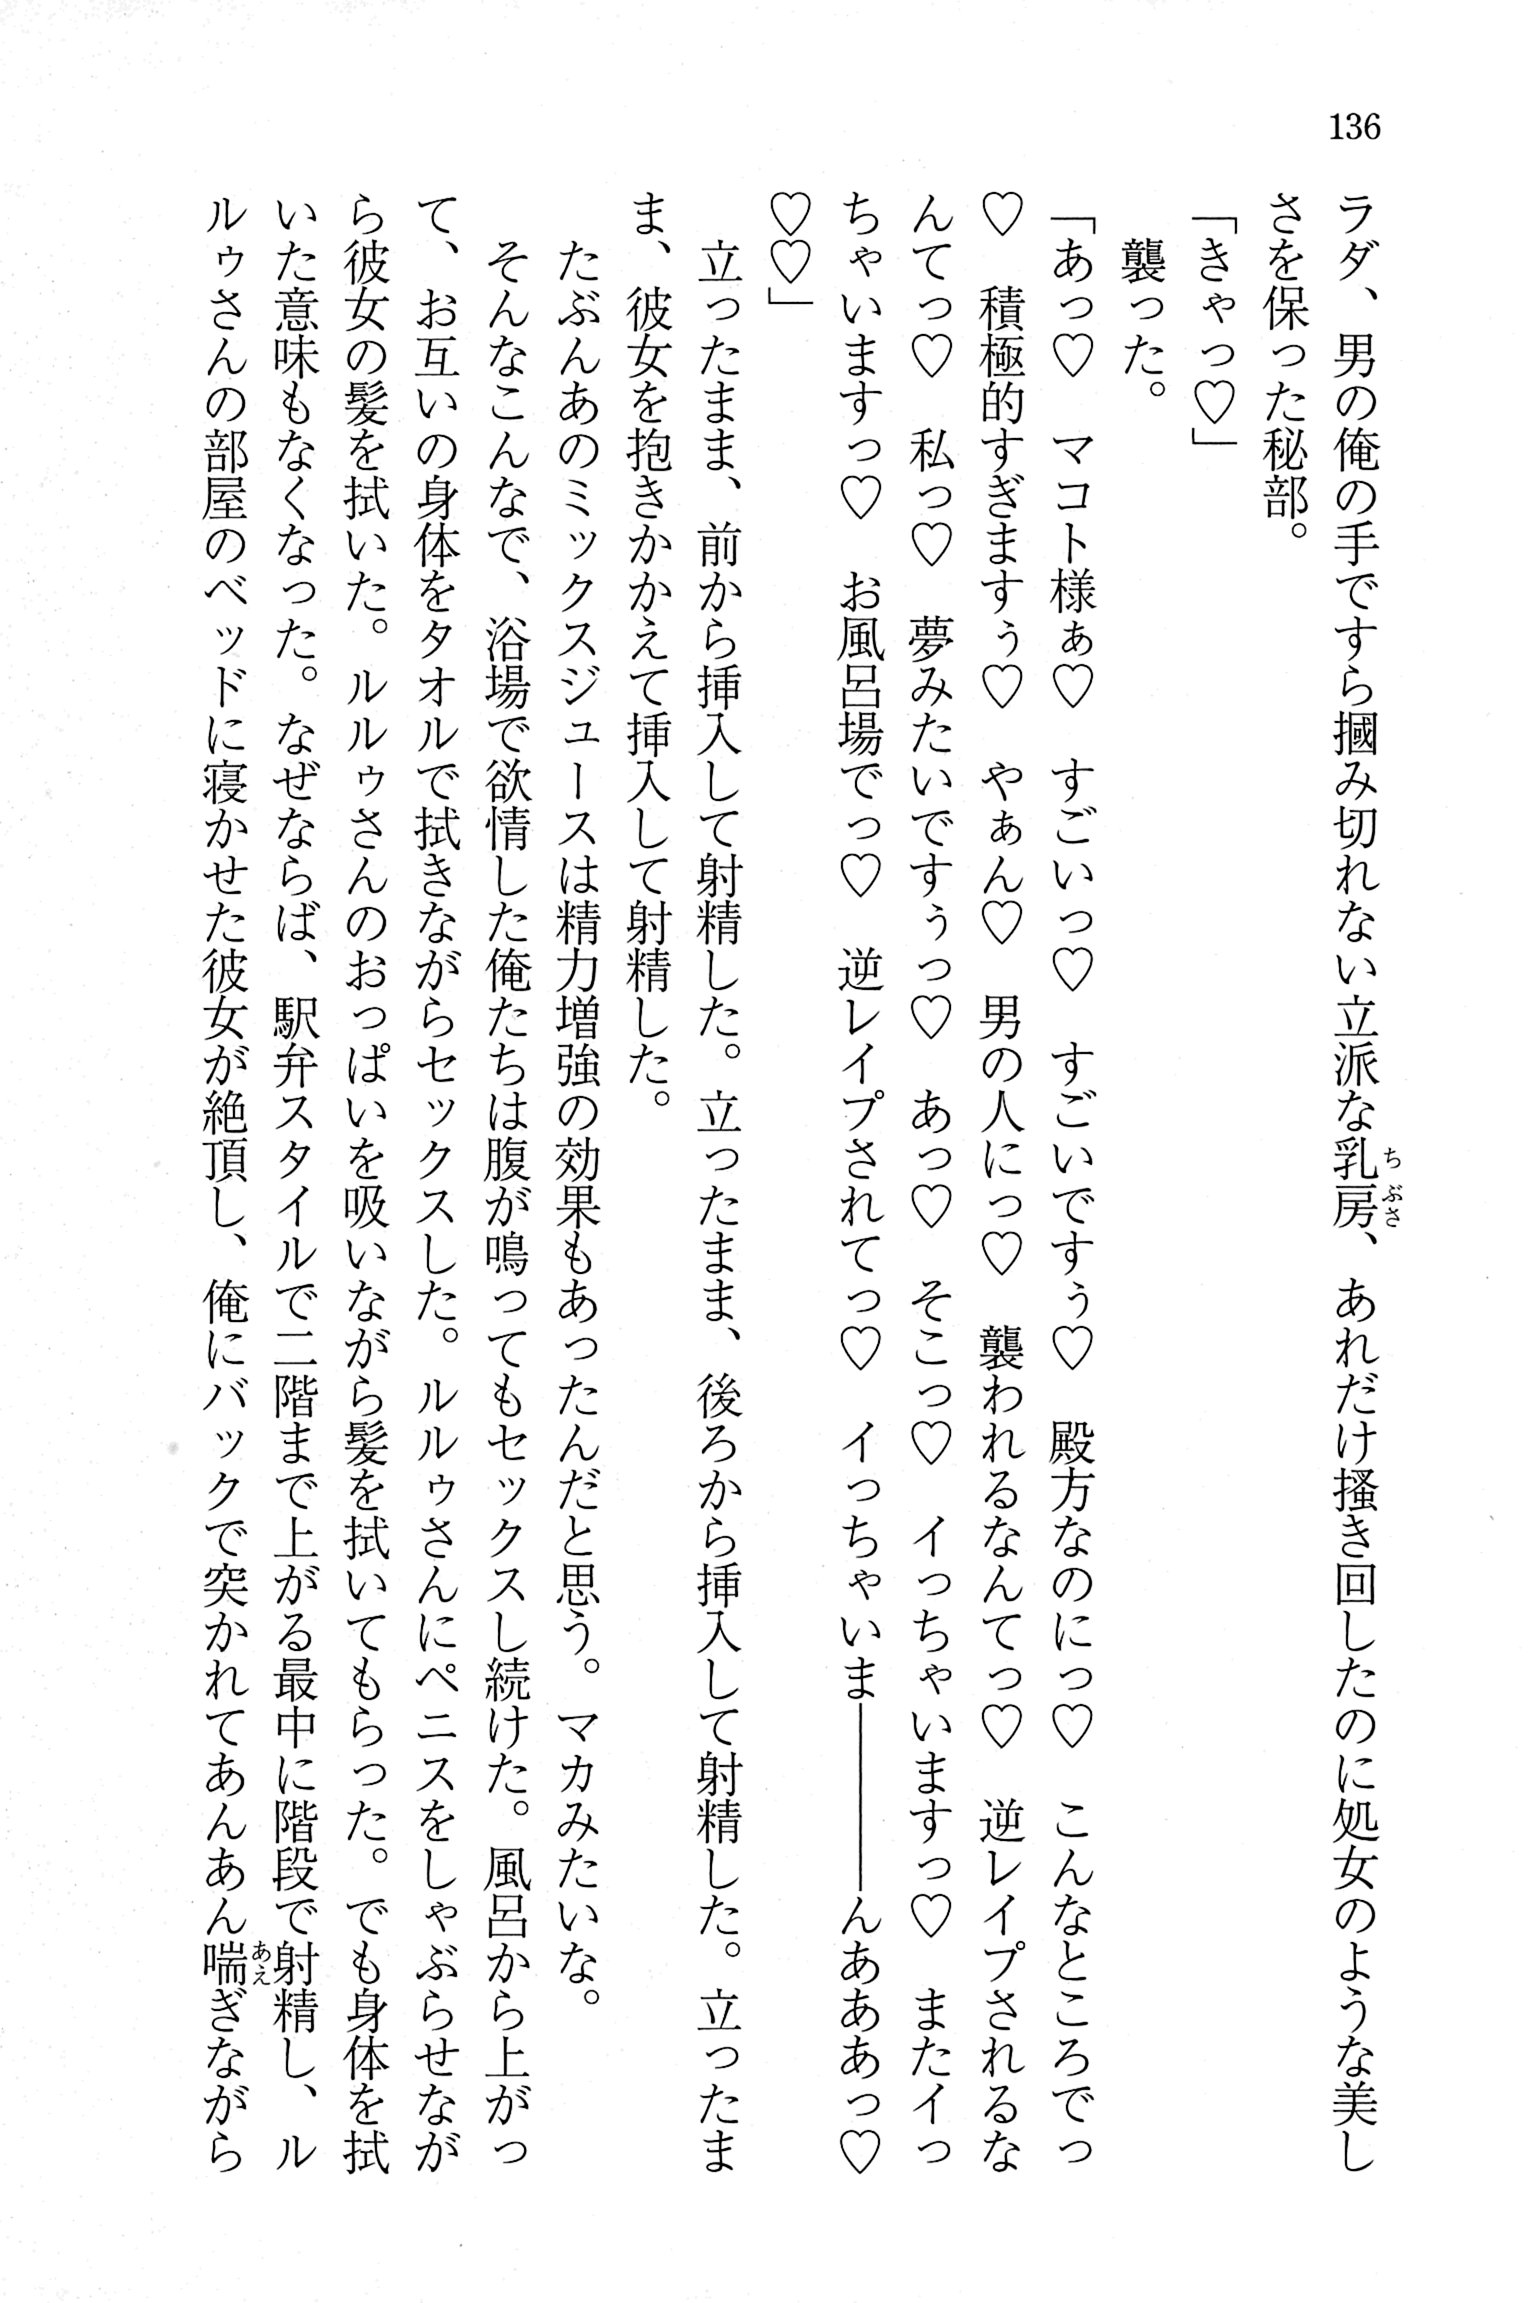 136
ラダ、男の俺の手ですら摑み切れない立派な乳房、あれだけ掻き回したのに処女のような美し
さを保った秘部。
「きゃっ♡」
　襲った。
「あっ♡　マコト様ぁ♡　すごいっ♡　すごいですぅ♡　殿方なのにっ♡　こんなところでっ
♡　積極的すぎますぅ♡　やぁん♡　男の人にっ♡　襲われるなんてっ♡　逆レイプされるな
んてっ♡　私っ♡　夢みたいですぅっ♡　あっ♡　そこっ♡　イっちゃいますっ♡　またイっ
ちゃいますっ♡　お風呂場でっ♡　逆レイプされてっ♡　イっちゃいま――――んあああっ♡
♡♡」
　立ったまま、前から挿入して射精した。立ったまま、後ろから挿入して射精した。立ったま
ま、彼女を抱きかかえて挿入して射精した。
　たぶんあのミックスジュースは精力増強の効果もあったんだと思う。マカみたいな。
　そんなこんなで、浴場で欲情した俺たちは腹が鳴ってもセックスし続けた。風呂から上がっ
て、お互いの身体をタオルで拭きながらセックスした。ルルゥさんにペニスをしゃぶらせなが
ら彼女の髪を拭いた。ルルゥさんのおっぱいを吸いながら髪を拭いてもらった。でも身体を拭
いた意味もなくなった。なぜならば、駅弁スタイルで二階まで上がる最中に階段で射精し、ル
ルゥさんの部屋のベッドに寝かせた彼女が絶頂し、俺にバックで突かれてあんあん喘ぎながら